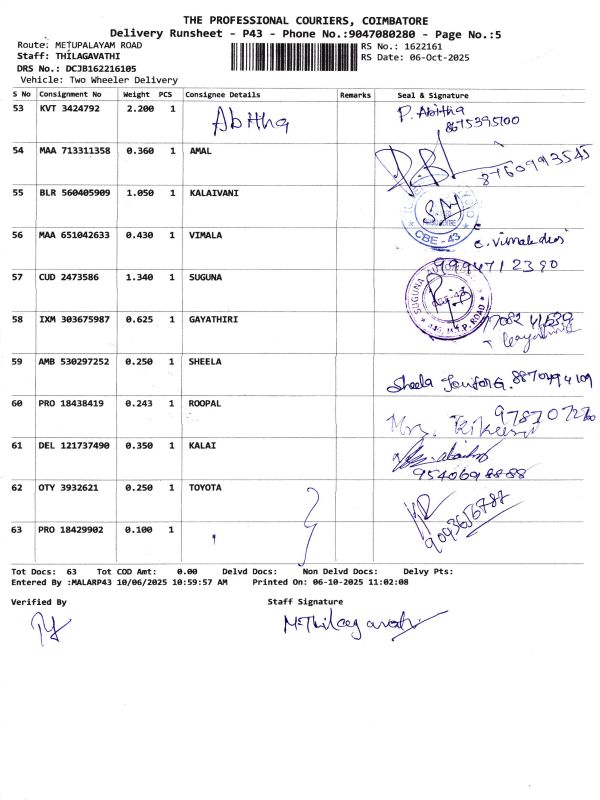 THE PROFESSIONAL COURIERS, COIMBATORE
Delivery Runsheet - P43 - Phone No.:9047080280 - Page No.:5
Route: METUPALAYAM ROAD RS No.: 1622161
Staff: THILAGAVATHI RS Date: 06-Oct-2025
DRS No.: DCJB162216105
Vehicle: Two Wheeler Delivery
S No Consignment No Weight PCS Consignee Details Remarks Seal & Signature
53 KVT 3424792 2.200 1 Abitha P. Abitha
8675395100
54 MAA 713311358 0.360 1 AMAL
8760993545
55 BLR 560405909 1.050 1 KALAIVANI
CBE - 43
56 MAA 651042633 0.430 1 VIMALA
9994712390
57 CUD 2473586 1.340 1 SUGUNA
58 IXM 303675987 0.625 1 GAYATHIRI
59 AMB 530297252 0.250 1 SHEELA
Sheela
60 PRO 18438419 0.243 1 ROOPAL
61 DEL 121737490 0.350 1 KALAI
62 OTY 3932621 0.250 1 TOYOTA
9093656788
63 PRO 18429902 0.100 1
Tot Docs: 63 Tot COD Amt: 0.00 Delvd Docs: Non Delvd Docs: Delvy Pts:
Entered By :MALARP43 10/06/2025 10:59:57 AM Printed On: 06-10-2025 11:02:08
Verified By Staff Signature
M.Thilagavathi